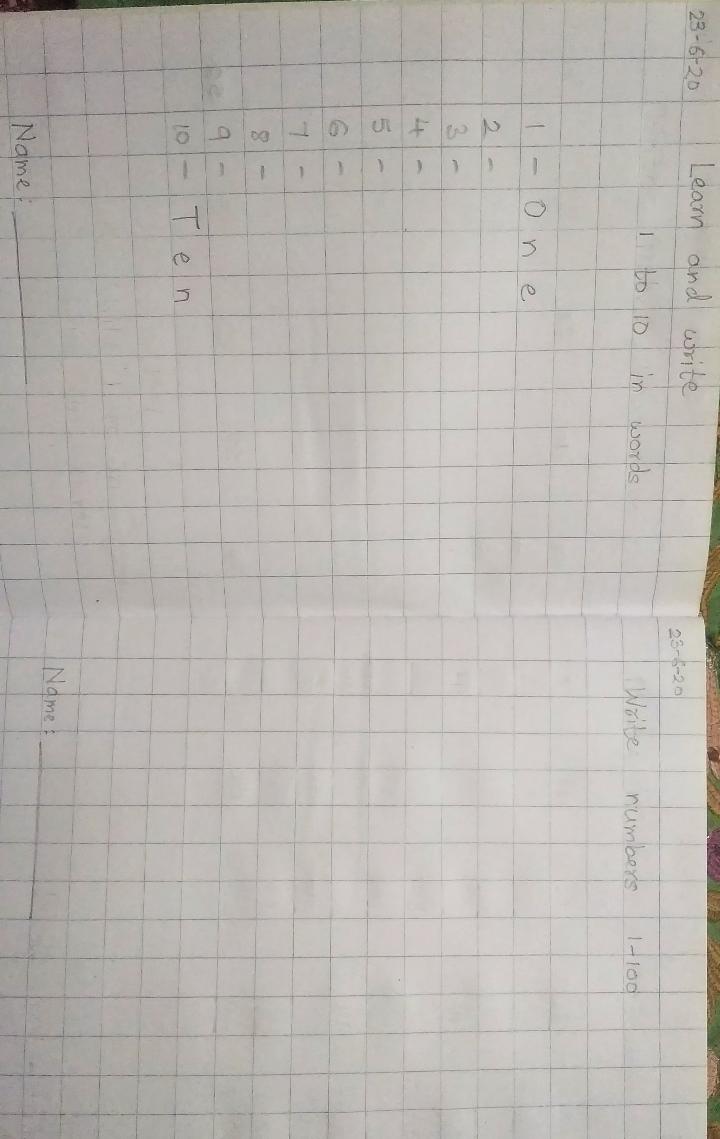 23-6-20
Learn and write
1 to 10 in words
1 - One
2 -
3 -
4 -
5 -
6 -
7 -
8 -
9 -
10 - Ten
Name:
23-6-20
Write numbers 1-100
Name: